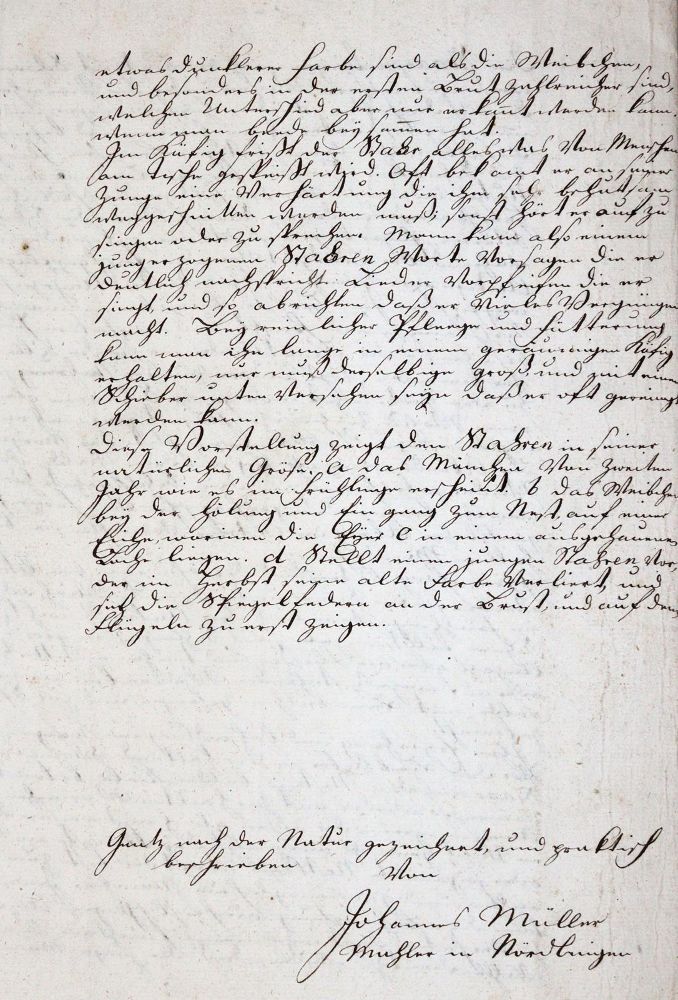 etwas dunklerer Farbe sind als die Weibchen,
und besonders in der ersten Brut zahlreicher sind,
welcher Unterschied aber nur erkannt werden kann,
wenn man beede beysammen hat.
Im Käfig frißt der Stahr alles was von Menschen
am Tische gespeißt wird. Oft bekomt er an seiner
Zunge eine Verhärtung die ihm sehr behutsam
wechgeschnitten werden muß, sonst hört er auf zu
singen oder zu sprechen. Mann kann also einem
jung erzogenen Stahren Worte vorsagen die er
deutlich nachspricht. Lieder vorpfeifen die er
singt, und so abrichten daß er vieles Vergnügen
macht. Bey reinlicher Pfleege und Fütterung
kann man ihn lange in einem geräumigen Käfig
erhalten, nur muß derselbige groß und mit einem
Schieber unten versehen seyn daß er oft gereinigt
werden kann.
Diese Vorstellung zeigt den Stahren in seiner
natürlichen Gröse. a das Mänchen von zweiten
Jahr wie es im Frühlinge erscheint. b das Weibchen
bey der Hölung und Eingang zum Nest, auf einer
Eiche, worinnen die Eyer c in einem ausgehauenen
Loche liegen. d Stellt einen jungen Stahren vor,
der im Herbst seine alte Farbe verliert, und
sich die Spiegelfedern an der Brust, und auf den
Flügeln zu erst zeigen.
Gantz nach der Natur gezeichnet, und praktisch
beschrieben
von
Johannes Müller
Mahler in Nördlingen